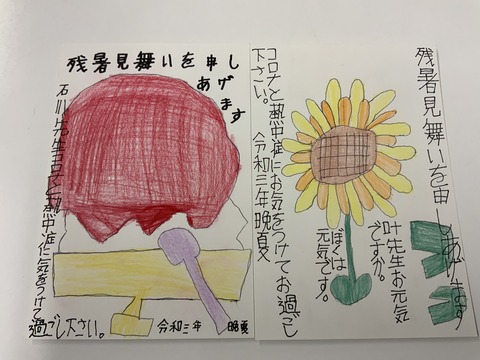 残暑見舞いを申し
あげます
石川先生コロナと熱中症に気をつけて過ごし下さい。
令和三年 晩夏
残暑見舞いを申しあげます
叶先生お元気
ですか。
ぼくは
元気です。
コロナと熱中症にお気をつけてお過ごし
下さい。 令和三年晩夏